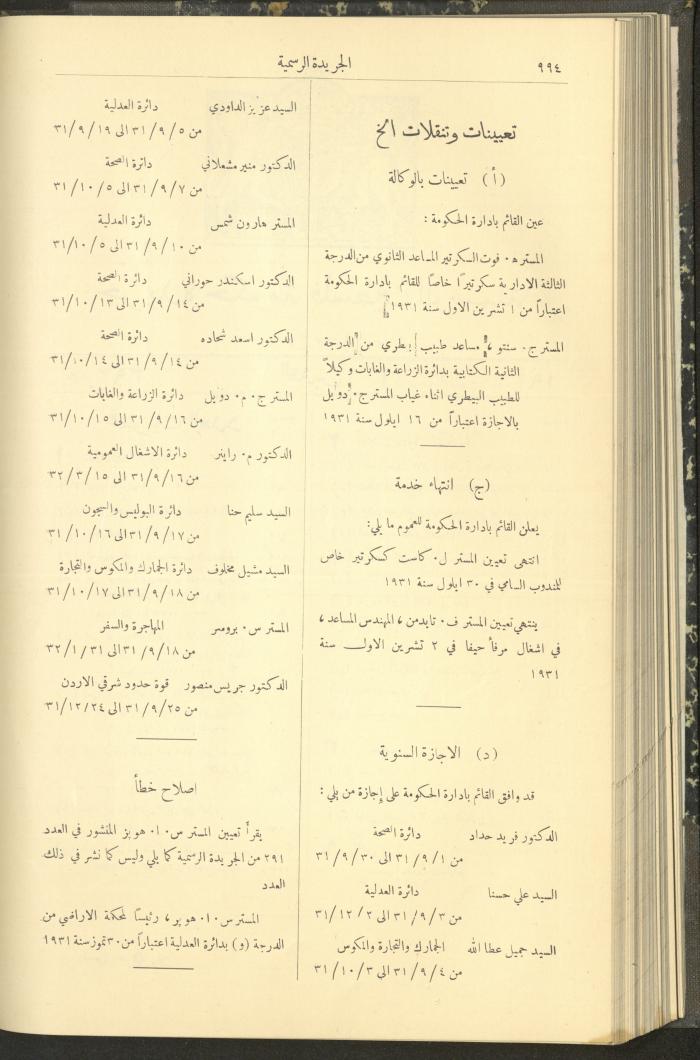 ٩٩٤
الجريدة الرسمية
تعيينات وتنقلات الخ
(أ) تعيينات بالوكالة
عين القائم بادارة الحكومة :
المستر ه٠ فوت السكرتير المساعد الثانوي من الدرجة
الثالثة الادارية سكرتيرًا خاصًا للقائم بادارة الحكومة
اعتبارًا من ١ تشرين الاول سنة ١٩٣١
المستر ج٠ سنتو ، مساعد طبيب بيطري من الدرجة
الثانية الكتابية بدائرة الزراعة والغابات وكيلاً
للطبيب البيطري اثناء غياب المستر ج٠ دويل
بالاجازة اعتبارًا من ١٦ ايلول سنة ١٩٣١
(ج) انتهاء خدمة
يعلن القائم بادارة الحكومة للعموم ما يلي:
انتهى تعيين المستر ل٠ كاست كسكرتير خاص
للمندوب السامي في ٣٠ ايلول سنة ١٩٣١
ينتهي تعيين المستر ف٠ تايدمن ، المهندس المساعد ،
في اشغال مرفأ حيفا في ٢ تشرين الاول سنة
١٩٣١
(د) الاجازة السنوية
قد وافق القائم بادارة الحكومة على إجازة من يلي :
الدكتور فريد حداد دائرة الصحة
من ٣١/٩/١ الى ٣١/٩/٣٠
السيد علي حسنا دائرة العدلية
من ٣١/٩/٣ الى ٣١/١٢/٢
السيد جميل عطا الله الجمارك والتجارة والمكوس
من ٣١/٩/٤ الى ٣١/١٠/٣
السيد عزيز الداودي دائرة العدلية
من ٣١/٩/٥ الى ٣١/٩/١٩
الدكتور منير مشعلاني دائرة الصحة
من ٣١/٩/٧ الى ٣١/١٠/٥
المستر هارون شمس دائرة العدلية
من ٣١/٩/١٠ الى ٣١/١٠/٥
الدكتور اسكندر حوراني دائرة الصحة
من ٣١/٩/١٤ الى ٣١/١٠/١٣
الدكتور اسعد شحاده دائرة الصحة
من ٣١/٩/١٤ الى ٣١/١٠/١٤
المستر ج٠ م٠ دويل دائرة الزراعة والغابات
من ٣١/٩/١٦ الى ٣١/١٠/١٥
الدكتور م٠ راينر دائرة الاشغال العمومية
من ٣١/٩/١٦ الى ٣٢/٣/١٥
السيد سليم حنا دائرة البوليس والسجون
من ٣١/٩/١٧ الى ٣١/١٠/١٦
السيد مشيل مخلوف دائرة الجمارك والمكوس والتجارة
من ٣١/٩/١٨ الى ٣١/١٠/١٧
المستر س٠ برومر المهاجرة والسفر
من ٣١/٩/١٨ الى ٣٢/١/٣١
الدكتور جريس منصور قوة حدود شرقي الاردن
من ٣١/٩/٢٥ الى ٣١/١٢/٢٤
اصلاح خطأ
يقرأ تعيين المستر س٠ ا٠ هوبر المنشور في العدد
٢٩١ من الجريدة الرسمية كما يلي وليس كما نشر في ذلك
العدد
المستر س٠ ا٠ هوبر ، رئيسًا لمحكمة الاراضي من
الدرجة (و) بدائرة العدلية اعتبارًا من ٣٠ تموز سنة ١٩٣١